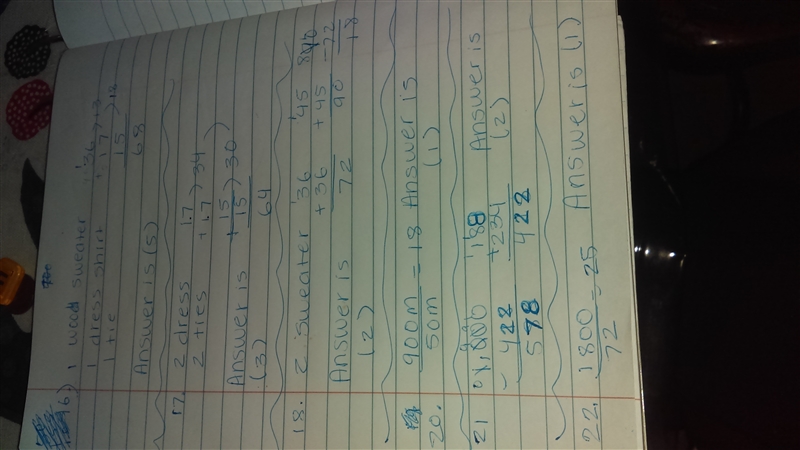 16.) 1 wool sweater 36
1 dress shirt + 17 > 13
1 tie 15 > 18
68
Answer is (5)
17. 2 dress 17
2 ties + 17 > 34
+ 15
15 > 30
Answer is 64
(3)
18. 2 sweater 36 45
+36 +45 -72
72 90 18
Answer is
(2)
20. 900m = 18 Answer is
50m (1)
21 1,000 188 Answer is
- 422 +234 (2)
578 422
22. 1800 = 25 Answer is (1)
72